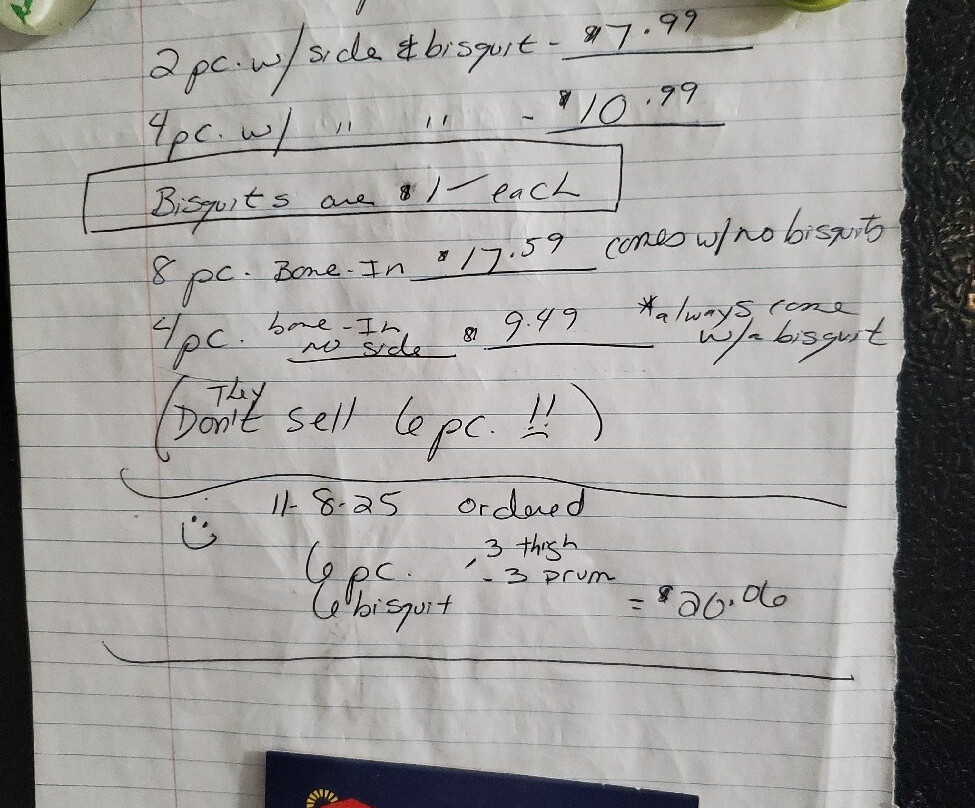 2 pc. w/ side & bisquit - $7.99
4 pc. w/ " " - $10.99
Bisquits are $1- each
8 pc. Bone-In $17.59 comes w/ no bisquits
4 pc. bone-In no side $9.49 *always come w/a bisquit
(They Don't sell 6 pc. !!)
11-8-25 ordered
6 pc. - 3 thigh
- 3 Drum
6 bisquit = $20.06